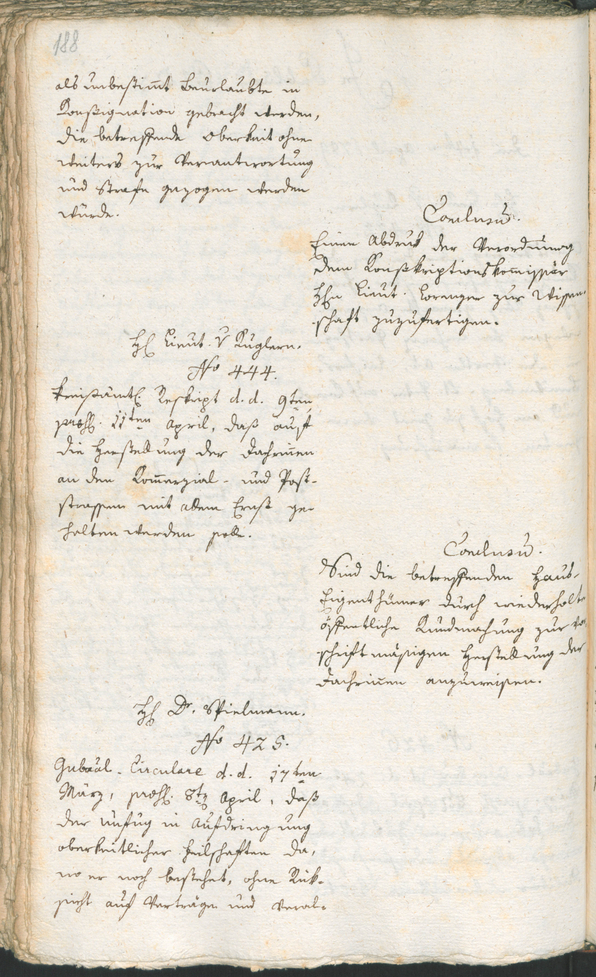 188
als unbestimt Beurlaubte in
Konsignation gebracht werden,
die betreffende Obrkeit ohne
weiters zur Verantwortung
und Strafe gezogen werden
würde.
Conclusū.
Einen Abdruk der Verordnung
dem Konskriptionskommissär
Hℓn Lieut. Lorenzer zur Wissen-
schaft zuzufertigen.
Hℓ Lieut. v Kuglern.
No 444.
Kreisämtl. Reskript d. d. 9ten
prosℓ. 11ten April, daß auf
die Herstellung der Dachrinen
an den Komerzial- und Post-
strassen mit allem Ernst ge-
halten werden solle.
Conclusū.
Sind die betreffenden Haus-
Eigenthümer durch wiederholte
öffentliche Kundmachung zur vor
schriftmäsigen Herstellung der
Dachrinen anzuweisen.
Hℓ Dr. Spielmann.
No 425.
Gubral-Circulare d. d. 17ten
März, prosℓ. 8ten April, daß
der Unfug in Aufdringung
oberkeitlicher Feilschaften da,
wo er noch bestehet, ohne Rük-
sicht auf Verträge und Veral-